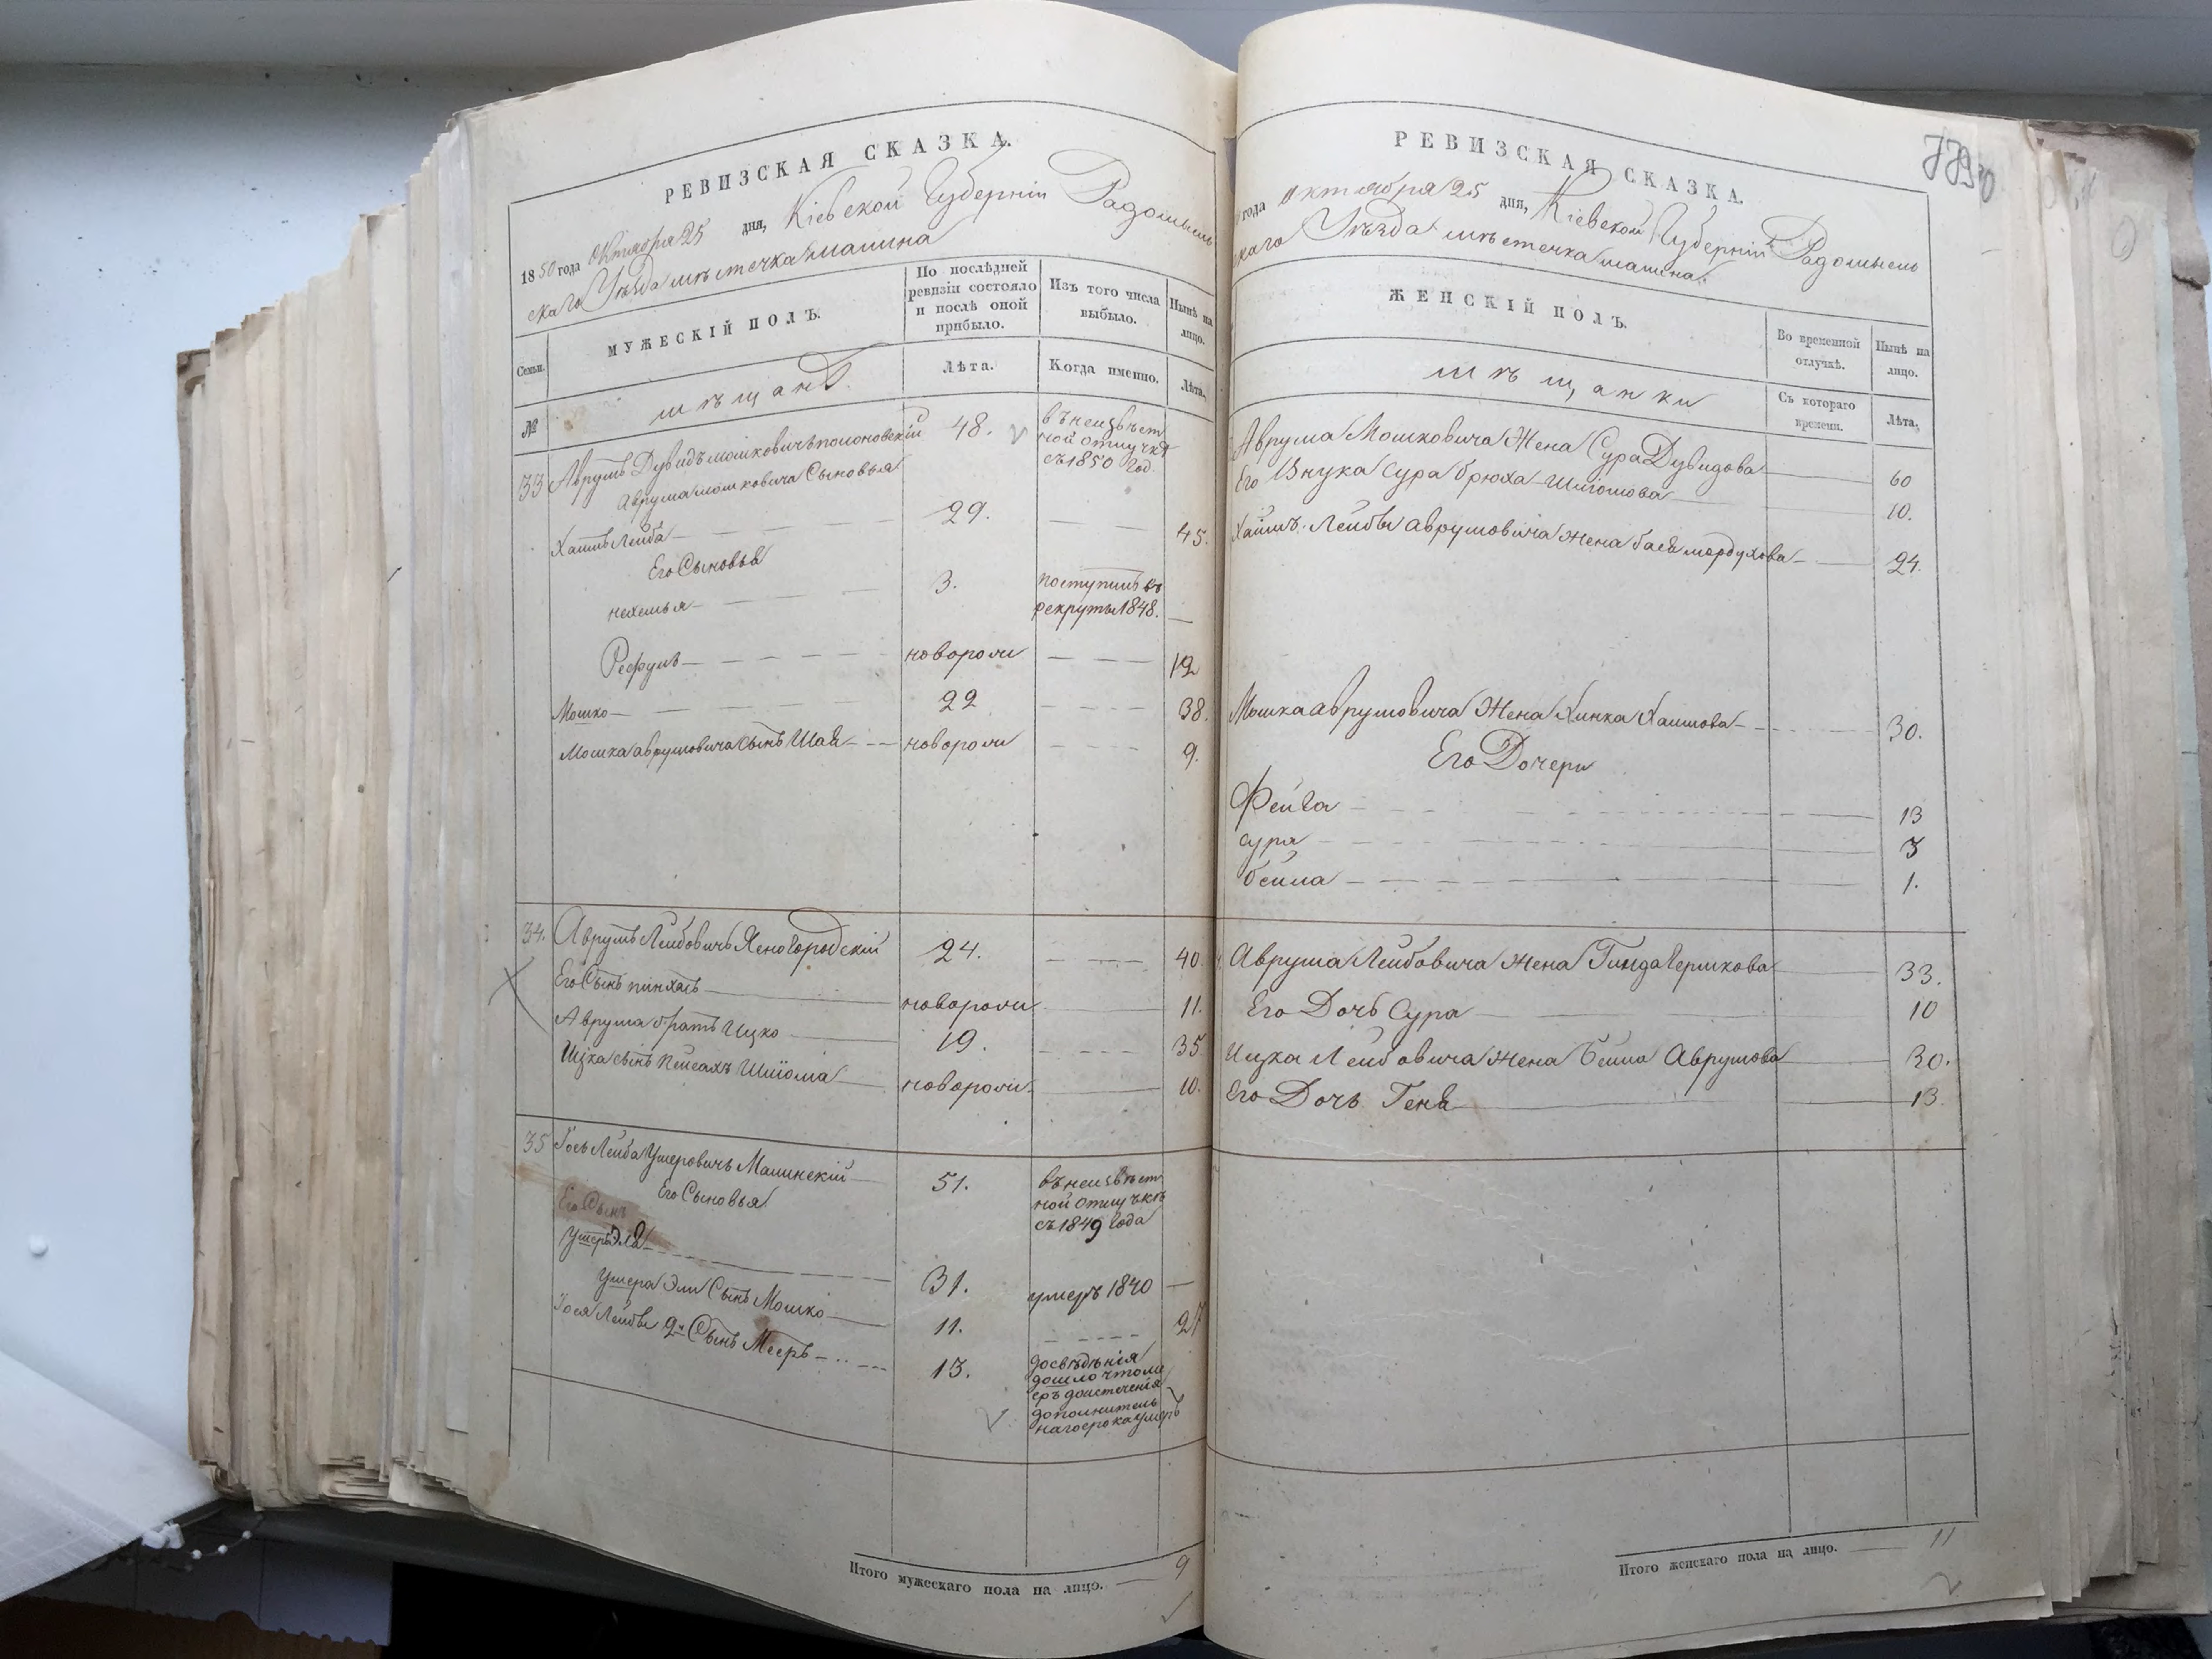 РЕВИЗСКАЯ СКАЗКА.
1850 года Октября 25 дня, Кіевской Губерніи Радомысль
скаго Уѣзда мѣстечка малина
Семьи.
МУЖЕСКІЙ ПОЛЪ.
По послѣдней ревизіи состояло и послѣ оной прибыло.
Изъ того числа выбыло.
Нынѣ на лицо.
№
мѣщанѣ.
Лѣта.
Когда именно.
Лѣта.
33 Аврумъ Дувидъ мошковичъ полоновскій 48. въ неизвѣст
ной отлучкѣ
съ 1850 год.
Аврума мошковича Сыновья
Хаимъ Лейба 29. 45.
Его Сыновья
нехемья 3. поступилъ въ
рекруты 1848.
Рефулъ новорожи 12
Мошко 22 38.
Мошка аврумовича сынъ Шая новорожи 9.
34. Аврумъ Лейбовичъ Хеногородскій 24. 40.
Его Сынъ пинхасъ новорожи 11.
Аврума братъ Ицко 19. 35
Ицка сынъ пейсахъ Шліома новорожи 10.
35 Іось Лейба Умеровичъ Малинскій 51. въ неизвѣст
ной отлучкѣ
съ 1849 года
Его Сыновья
Его Сынъ
Умеръ Эля 31. умеръ 1840
Умера Эли Сынъ Мошко 11. 27
Іося Лейбы 2й Сынъ Мееръ 13. до свѣдѣнія
дошло что ме
еръ до истеченія
дополнитель
наго срока умеръ
Итого мужескаго пола на лицо. 9
РЕВИЗСКАЯ СКАЗКА.
года октября 25 дня, Кіевской Губерніи Радомысль
скаго Уѣзда мѣстечка малина.
ЖЕНСКІЙ ПОЛЪ.
Во временной отлучкѣ.
Нынѣ на лицо.
мѣщанки
Съ котораго времени.
Лѣта.
Аврума Мошковича Жена Сура Дувидова 60
Его Внука Сура брюха Шліомова 10.
Хаимъ Лейбы аврумовича жена бася мордухова 24.
Мошка аврумовича Жена Хинка Хаимова 30.
Его Дочери
Фейга 13
сура 3
бейла 1.
Аврума Лейбовича жена Гинда гершкова 33.
Его Дочь Сура 10
Ицка Лейбовича жена Бейла Аврумова 30.
Его Дочь Геня 13.
Итого женскаго пола на лицо. 11